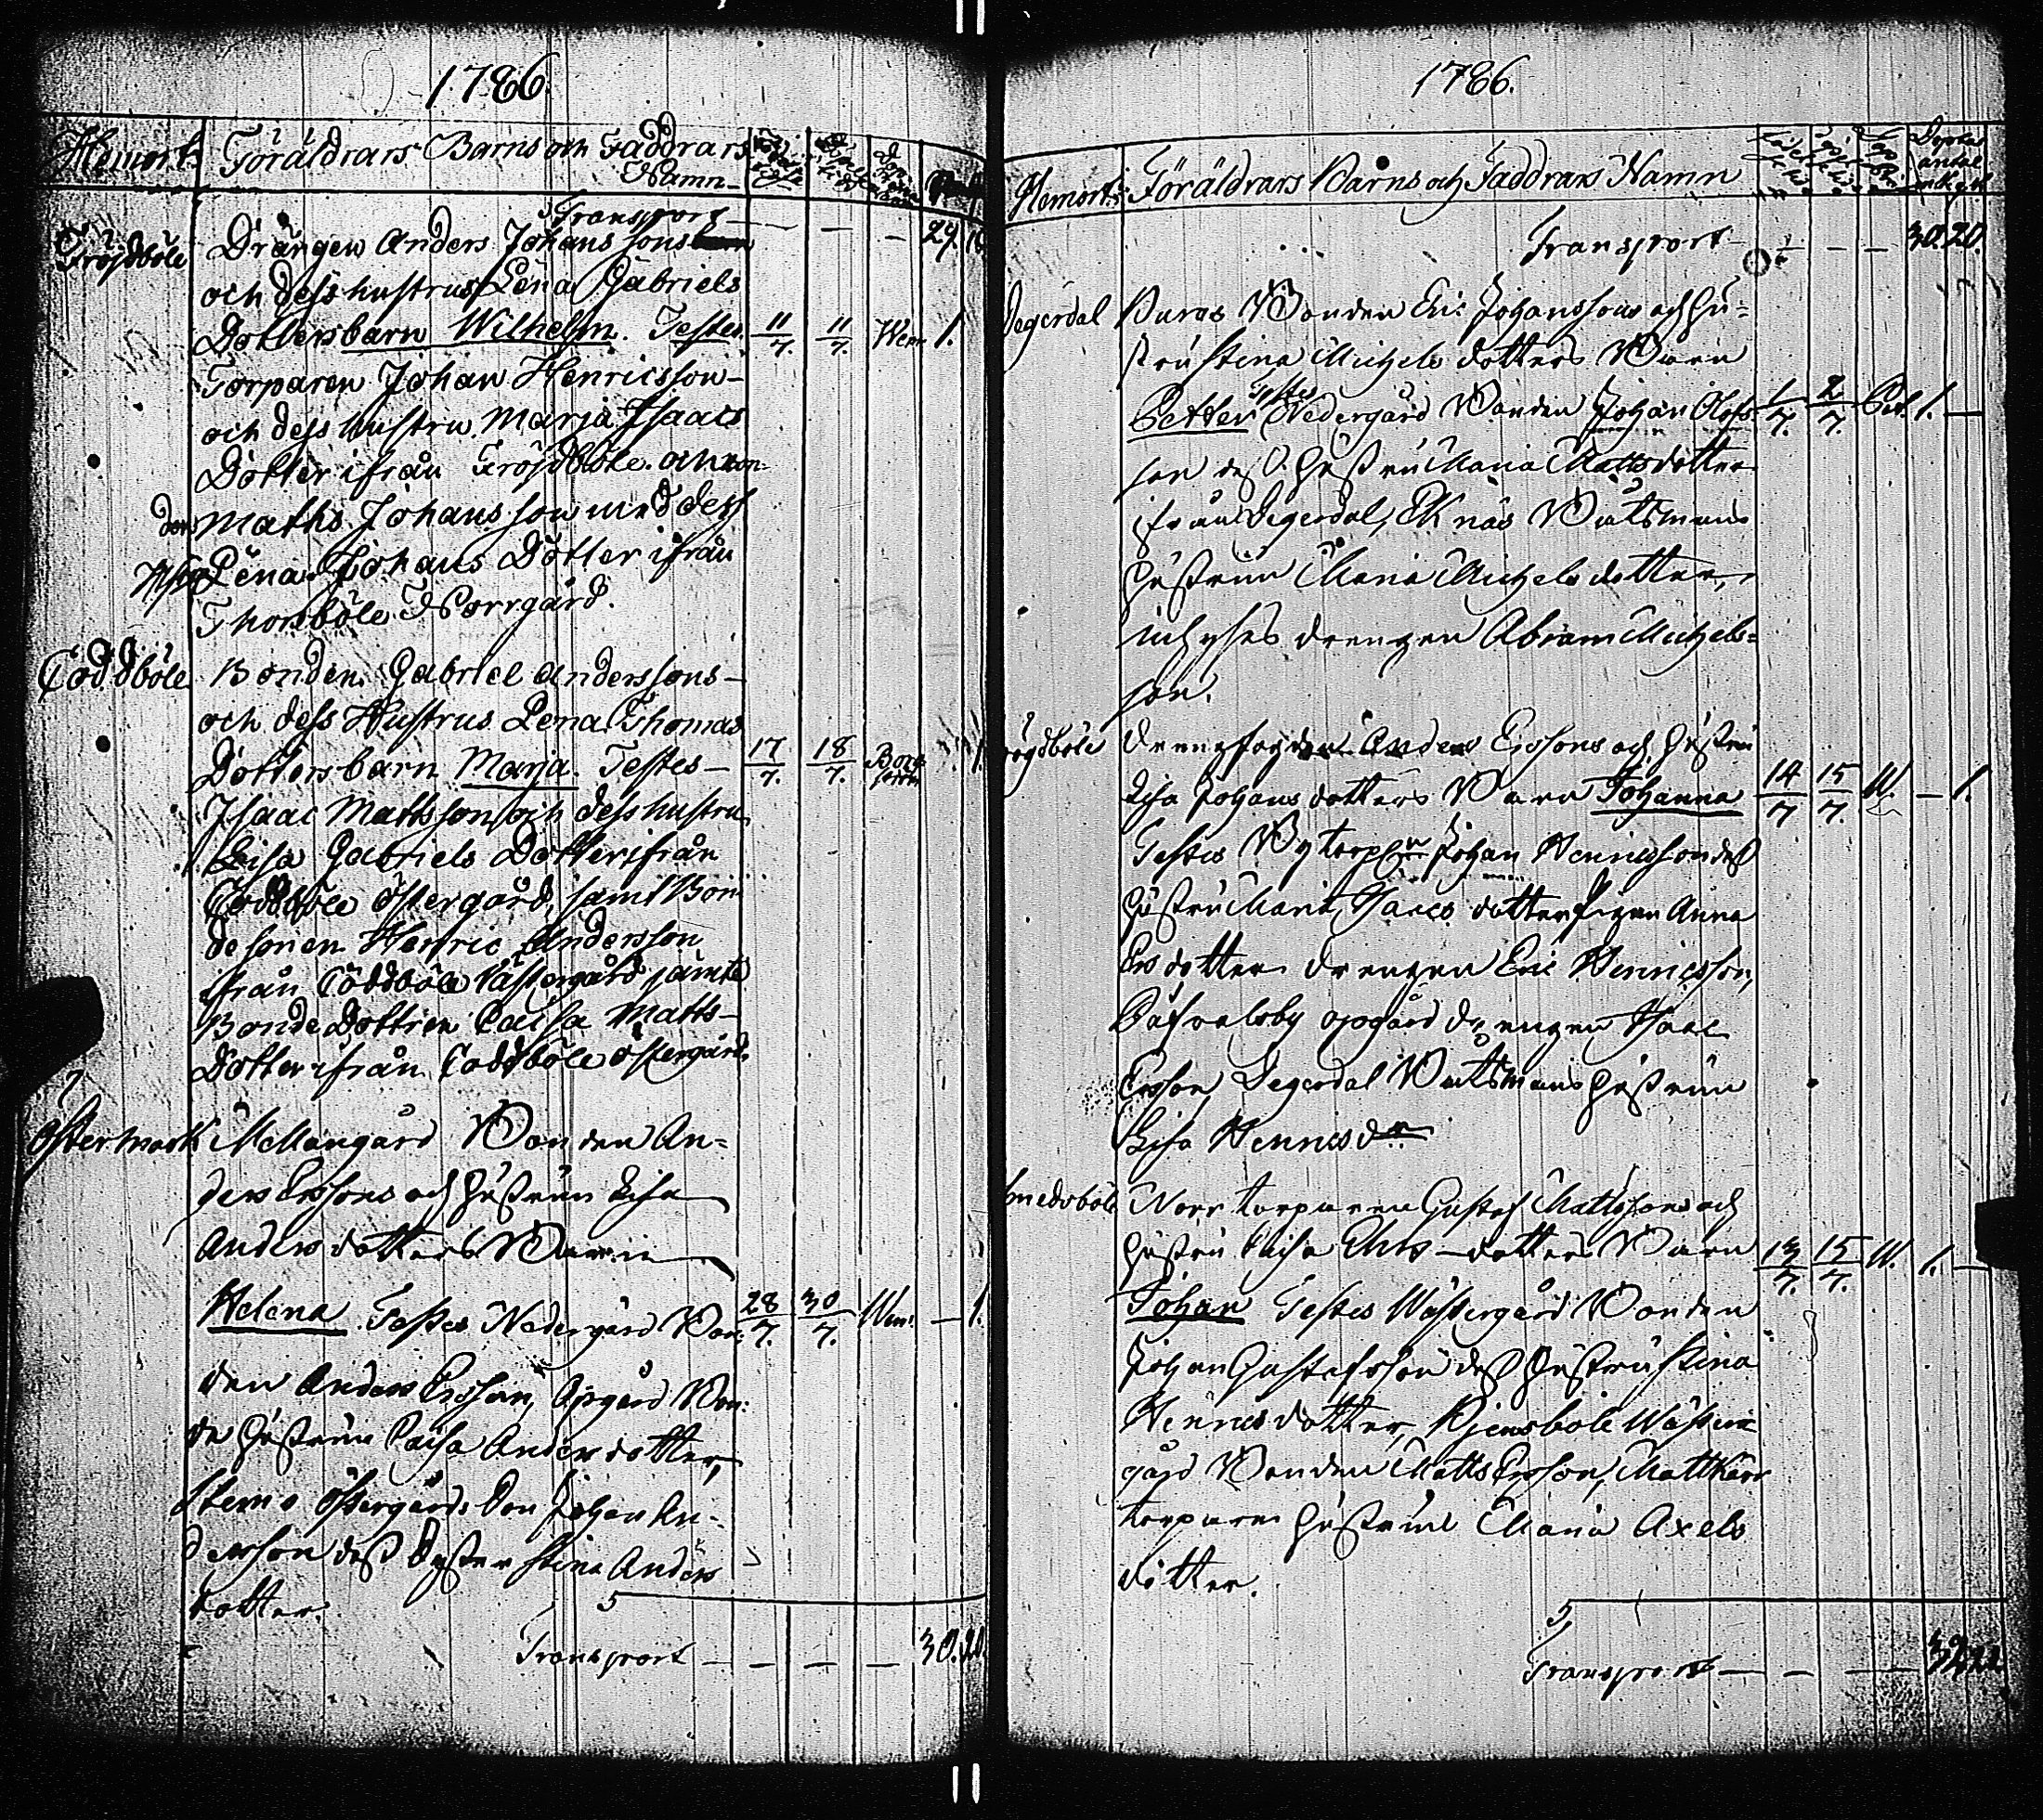 1786.
Hemort. Föräldrars Barns och Faddrars
Namn
Transport — — — — 29.
Fröjdböle Drängen Anders Johans sons
och dess hustrus Lena Gabriels
Dotters barn Wilhelm. Testes. 11/7. 11/7. Wem 1.
Torparen Johan Henricsson
och dess hustru Marja Isaacs
Dotter ifrån Fröjdböle. och Bon-
den Maths Johans son med dess
Lena Johans Dotter ifrån
Thorsböle Norrgård.
Töddböle Bonden Gabriel Anderssons
och dess Hustrus Lena Thomas
Dotters barn Marja. Testes 17/7. 18/7. 1.
Isaac Matts son och dess hustru
Lisa Gabriels Dotter ifrån
Töddböle östergård, samt Bon
de sonen Henric Andersson
ifrån Töddböle Västergård jämte
Bonde Dottren Caisa Matts
Dotter ifrån Töddböle östergård.
Östermark Mellangård Bonden An=
ders Erssons och Hustrun Lisa
Anders dotters Barn
Helena. Testes Nedergård Bon: 28/7. 30/7. Wem. — 1.
den Anders Ersson, Opgård Bon:
de Hustrun Caisa Anders dotter,
östergårds Bon Johan An-
dersson dess Syster Stina Anders
dotter.
Transport — — — — 30.20.
1786.
Hemort. Föräldrars Barns och Faddrars Namn
Transport — — — — 30.20.
Degerdal Bonden Eric Johanssons och Hu=
stru Stina Michels dotters Barn
Testes
Petter Nedergård Bonden Johan Olofs 1/7. 2/7. 1. —
son dess Hustru Maria Matts dotter
ifrån Degerdal, Eknäs Båtsmans
Hustrun Maria Michels dotter,
drengen Abram Michels=
son.
Anders Erssons och Hustru
Lisa Johans dotters Barn Johanna 14/7 15/7. W. — 1.
Testes Johan Henricsson dess
Hustru Maria Isaacs dotter Pigan Anna
Ers dotter drengen Eric Henricsson,
opgård drengen Isaac
Ersson, Degerdal Båtsmans Hustrun
Lisa Henrics dr
Smedsböle Norr torparen Gustaf Mattssons och
Hustru Caisa dotters Barn 13/7. 15/7. W. 1. —
Johan Testes Wästergård Bonden
Johan Gustafsson dess Hustru Stina
Henrics dotter, Wäster
gård Bonden Matts Ersson, Mattkärr
torparen Hustrun Maria Axels
dotter.
Transport — — — 32.22